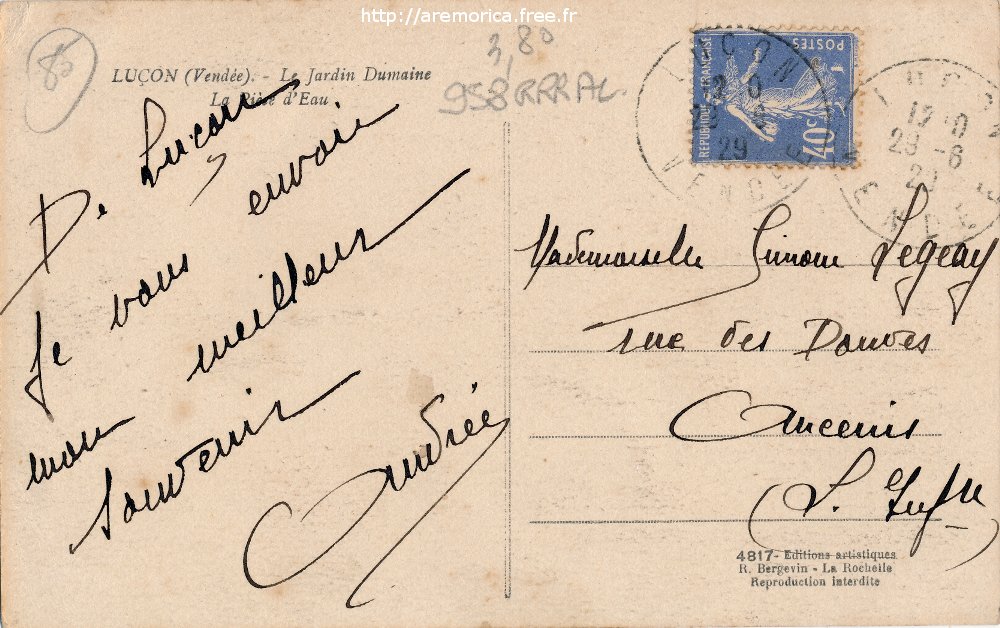 http://aremorica.free.fr
85
3,80
958RRRAL
LUÇON (Vendée). - Le Jardin Dumaine
La Pièce d'Eau
De Luçon
Je vous envoie
mon meilleur
souvenir
Andrée
RÉPUBLIQUE FRANÇAISE
POSTES
40c
LUCON
29
VENDEE
LUCON
29 -8
29
VENDEE
Mademoiselle Simone Legeay
rue des Douves
Ancenis
(L. Infre
4817- Editions artistiques
R. Bergevin - La Rochelle
Reproduction interdite